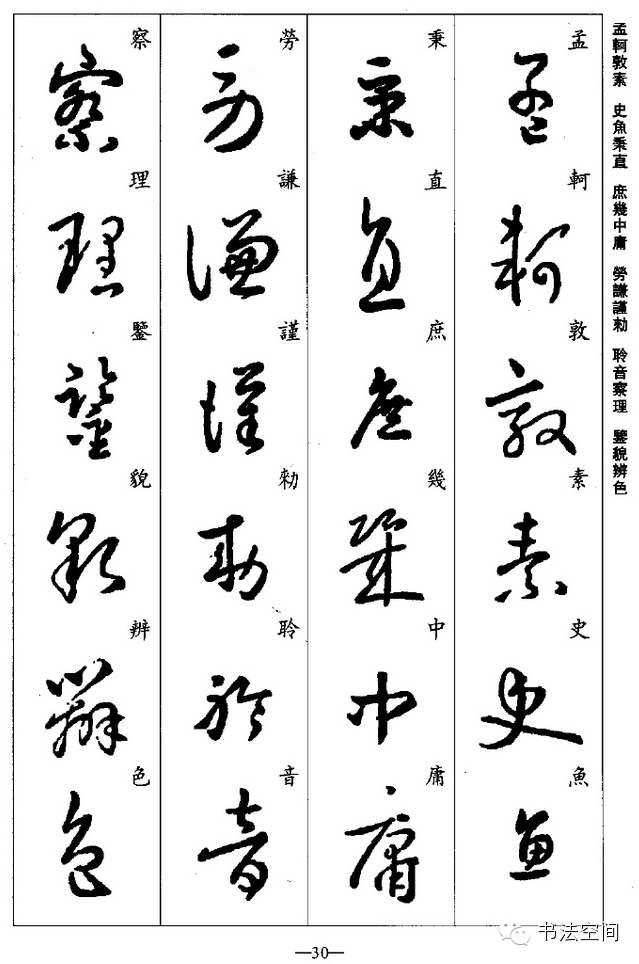 孟軻敦素 史魚秉直 庶幾中庸 勞謙謹勑 聆音察理 鑒貌辨色
孟軻敦素史魚
秉直庶幾中庸
勞謙謹勑聆音
察理鑒貌辨色
—30—
书法空间